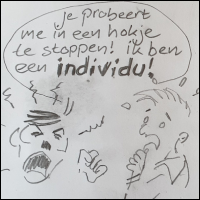 je probeert
me in een hokje
te stoppen! ik ben
een individu!